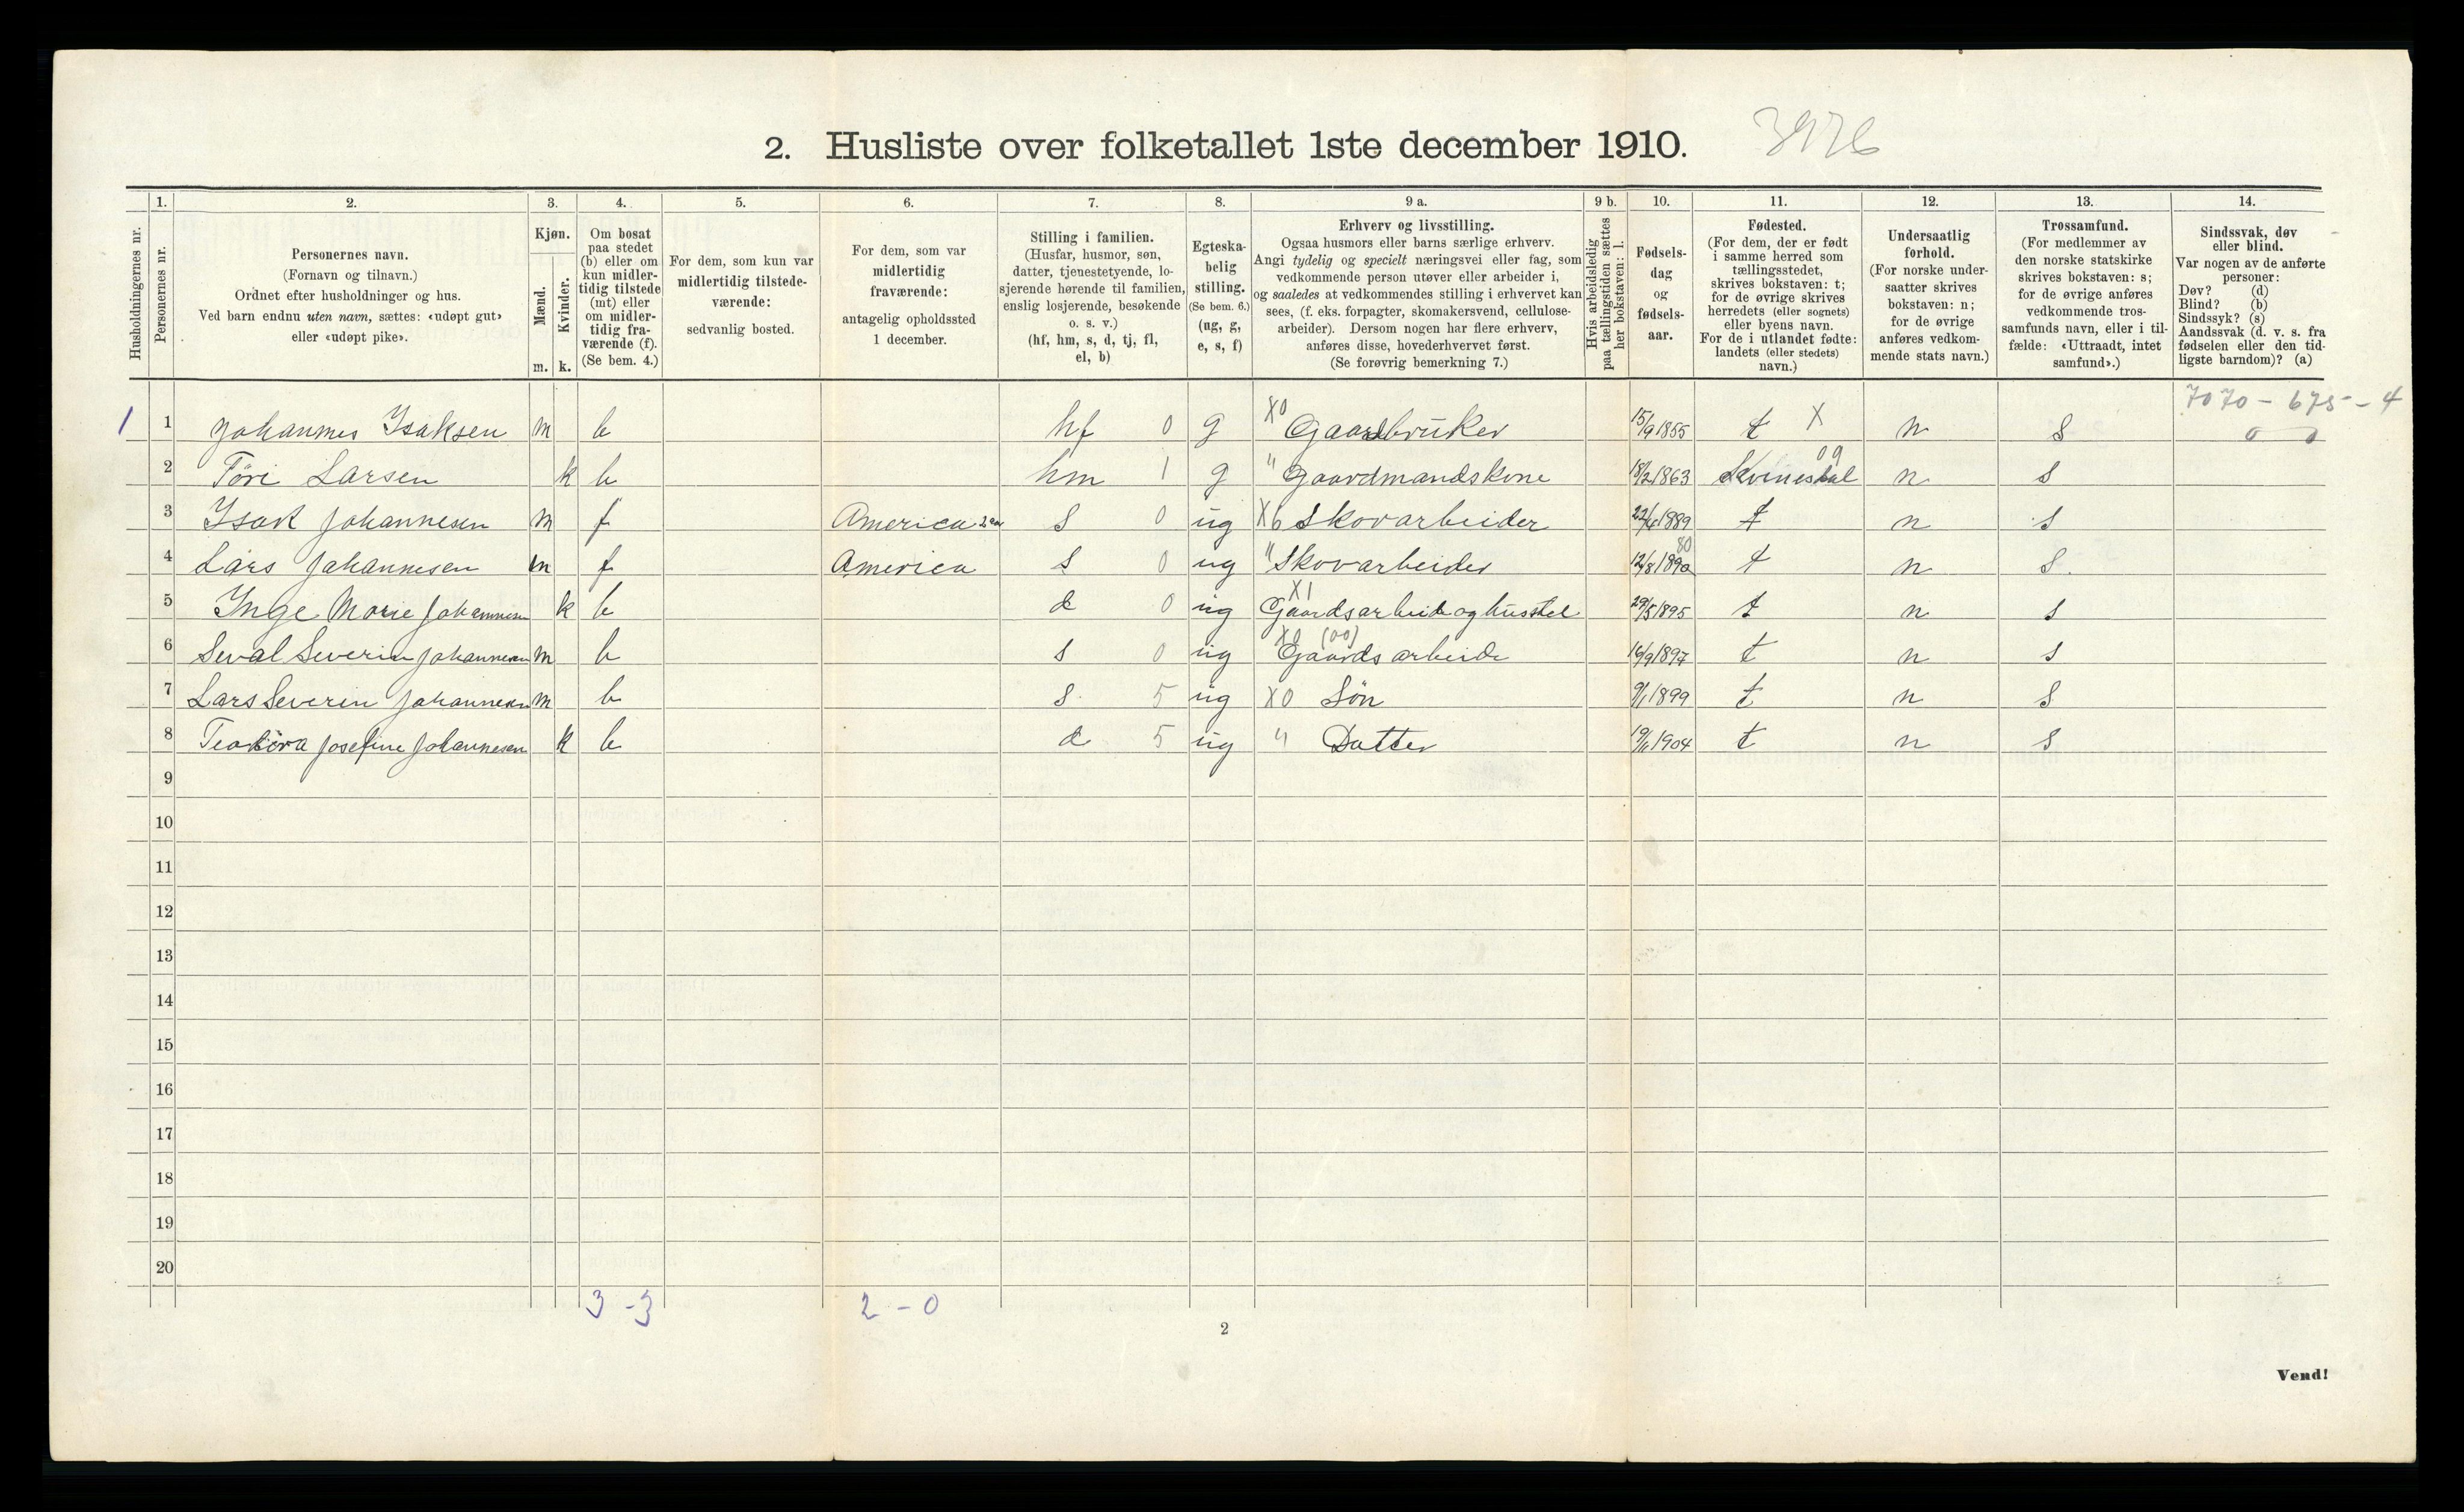 2. Husliste over folketallet 1ste december 1910. 3976
Husholdningernes nr.
1. Personernes nr.
2. Personernes navn.
(Fornavn og tilnavn.)
Ordnet efter husholdninger og hus.
Ved barn endnu uten navn, sættes: «udøpt gut»
eller «udøpt pike».
3. Kjøn.
Mænd. Kvinder.
m. k.
4. Om bosat
paa stedet
(b) eller om
kun midler-
tidig tilstede
(mt) eller
om midler-
tidig fra-
værende (f).
(Se bem. 4.)
5. For dem, som kun var
midlertidig tilstede-
værende:
sedvanlig bosted.
6. For dem, som var
midlertidig
fraværende:
antagelig opholdssted
1 december.
7. Stilling i familien.
(Husfar, husmor, søn,
datter, tjenestetyende, lo-
sjerende hørende til familien,
enslig losjerende, besøkende
o. s. v.)
(hf, hm, s, d, tj, fl,
el, b)
8. Egteska-
belig
stilling.
(Se bem. 6.)
(ug, g,
e, s, f)
9 a. Erhverv og livsstilling.
Ogsaa husmors eller barns særlige erhverv.
Angi tydelig og specielt næringsvei eller fag, som
vedkommende person utøver eller arbeider i,
og saaledes at vedkommendes stilling i erhvervet kan
sees, (f. eks. forpagter, skomakersvend, cellulose-
arbeider). Dersom nogen har flere erhverv,
anføres disse, hovederhvervet først.
(Se forøvrig bemerkning 7.)
9 b. Hvis arbeidsledig
paa tællingstiden sættes
her bokstaven: l.
10. Fødsels-
dag
og
fødsels-
aar.
11. Fødested.
(For dem, der er født
i samme herred som
tællingsstedet,
skrives bokstaven: t;
for de øvrige skrives
herredets (eller sognets)
eller byens navn.
For de i utlandet fødte:
landets (eller stedets)
navn.)
12. Undersaatlig
forhold.
(For norske under-
saatter skrives
bokstaven: n;
for de øvrige
anføres vedkom-
mende stats navn.)
13. Trossamfund.
(For medlemmer av
den norske statskirke
skrives bokstaven: s;
for de øvrige anføres
vedkommende tros-
samfunds navn, eller i til-
fælde: «Uttraadt, intet
samfund».)
14. Sindssvak, døv
eller blind.
Var nogen av de anførte
personer:
Døv? (d)
Blind? (b)
Sindssyk? (s)
Aandssvak (d. v. s. fra
fødselen eller den tid-
ligste barndom)? (a)
7070 - 675 - 4
1 1 Johannes Isaksen m b hf 0 g X0 Gaardbruker 15/9 1855 t X n s 0 0
2 Töri Larsen k b hm 1 g " Gaardmandskone 18/2 1863 Kvinesdal 09 n s
3 Isak Johannesen m f America s 0 ug X6 Skovarbeider 22/6 1889 t n s
80
4 Lars Johannesen m f America s 0 ug " Skovarbeider 12/8 1890 t n s
5 Inge Marie Johannesen k b d 0 ug X1 Gaardsarbeide og husstel 29/5 1895 t n s
6 Seval Severin Johannesen m b s 0 ug X0 (00) Gaards arbeide 16/9 1897 t n s
7 Lars Severin Johannesen m b s 5 ug X0 Sön 9/1 1899 t n s
8 Teodora Josefine Johannesen k b d 5 ug " Datter 19/6 1904 t n s
9
10
11
12
13
14
15
16
17
18
19
20
3 - 3 2 - 0
2
Vend!